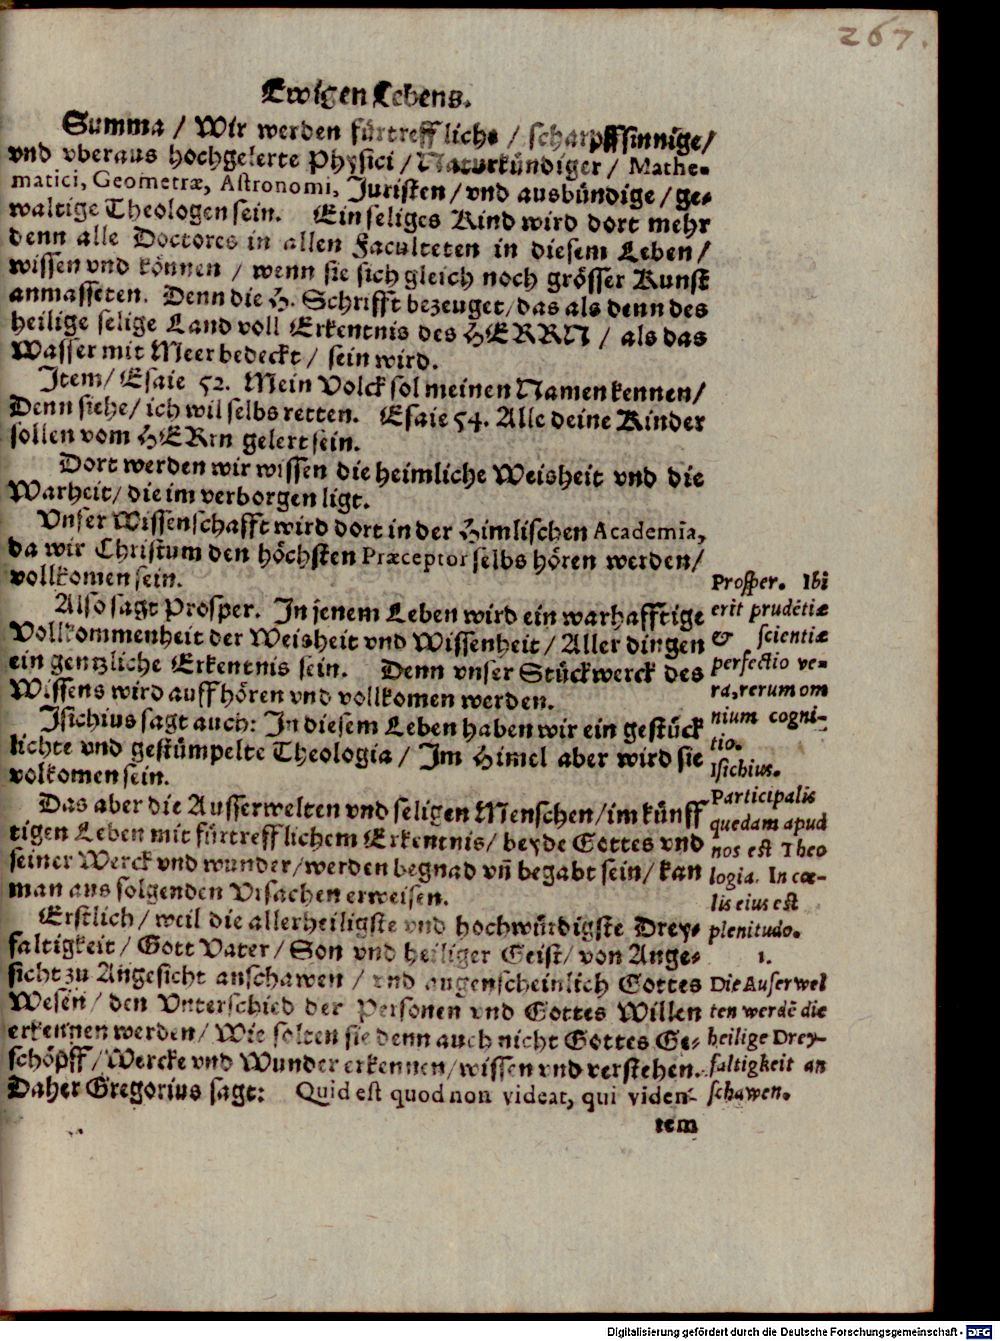 267.
Ewigen Lebens.
Summa / Wir werden fürtreffliche / scharpffsinnige/
vnd vberaus hochgelerte Physici / Naturkündiger / Mathe-
matici, Geometræ, Astronomi, Juristen / vnd ausbündige / ge-
waltige Theologen sein. Ein seliges Kind wird dort mehr
denn alle Doctores in allen Faculteten in diesem Leben /
wissen vnd können / wenn sie sich gleich noch grösser Kunst
anmasseten. Denn die H. Schrifft bezeuget / das als denn des
heilige selige Land voll Erkentnis des HERRN / als das
Wasser mit Meer bedeckt / sein wird.
Item / Esaie 52. Mein Volck sol meinen Namen kennen /
Denn siehe / ich wil selbs retten. Esaie 54. Alle deine Kinder
sollen vom HERrn gelert sein.
Dort werden wir wissen die heimliche Weisheit vnd die
Warheit / die im verborgen ligt.
Vnser Wissenschafft wird dort in der Himlischen Academia,
da wir Christum den höchsten Præceptor selbs hören werden /
vollkomen sein.
Also sagt Prosper. In jenem Leben wird ein warhafftige
Vollkommenheit der Weisheit vnd Wissenheit / Aller dingen
ein gentzliche Erkentnis sein. Denn vnser Stückwerck des
Wissens wird auffhören vnd vollkomen werden.
Isichius sagt auch: In diesem Leben haben wir ein gestück
lichte vnd gestümpelte Theologia / Im Himel aber wird sie
volkomen sein.
Das aber die Ausserwelten vnd seligen Menschen / im künff
tigen Leben mit fürtrefflichem Erkentnis / beyde Gottes vnd
seiner Werck vnd wunder / werden begnad vñ begabt sein / kan
man aus folgenden Vrsachen erweisen.
Erstlich / weil die allerheiligste vnd hochwürdigste Drey-
faltigkeit / Gott Vater / Son vnd heiliger Geist / von Ange-
sicht zu Angesicht anschawen / vnd augenscheinlich Gottes
Wesen / den Vnterschied der Personen vnd Gottes Willen
erkennen werden / Wie solten sie denn auch nicht Gottes Ge-
schöpff / Wercke vnd Wunder erkennen / wissen vnd verstehen.
Daher Gregorius sagt: Quid est quod non videat, qui viden-
tem
Prosper. Ibi
erit prudētiæ
& scientiæ
perfectio ve-
ra, rerum om
nium cogni-
tio.
Isichius.
Participalis
quedam apud
nos est Theo
logia. In cœ-
lis eius est
plenitudo.
1.
Die Auserwel
ten werdē die
heilige Drey-
faltigkeit an
schawen.
Digitalisierung gefördert durch die Deutsche Forschungsgemeinschaft - DFG